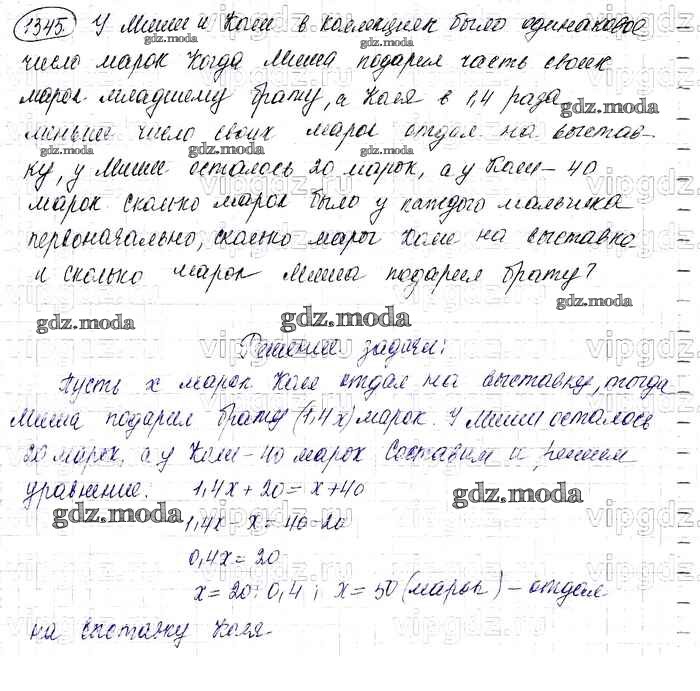 1345. У Миши и Коли в коллекциях было одинаковое
число марок Когда Миша подарил часть своих
марок младшему брату, а Коля в 1,4 раза
меньше число своих марок отдал на выстав-
ку, у Миши осталось 20 марок, а у Коли - 40
марок. Сколько марок было у каждого мальчика
первоначально, сколько марок Коли на выставке
и сколько марок Миша подарил брату?
Решение задачи:
Пусть x марок Коля отдал на выставку, тогда
Миша подарил брату (1,4x) марок. У Миши осталось
20 марок, а у Коли - 40 марок Составим и решим
уравнение: 1,4x + 20 = x + 40
1,4x - x = 40 - 20
0,4x = 20
x = 20 : 0,4 ; x = 50 (марок) - отдал
на Коля
gdz.moda
vipgdz.ru